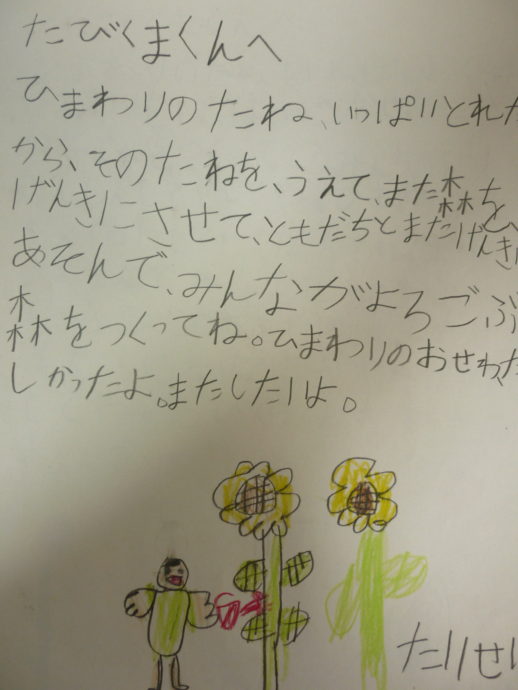 たびくまくんへ
ひまわりのたね、いっぱいとれた
から、そのたねを、うえて、また森を
げんきにさせて、ともだちとまたげんきに
あそんで、みんながよろごぶ
森をつくってね。ひまわりのおせわ、た
しかったよ。またしたいよ。
たいせい